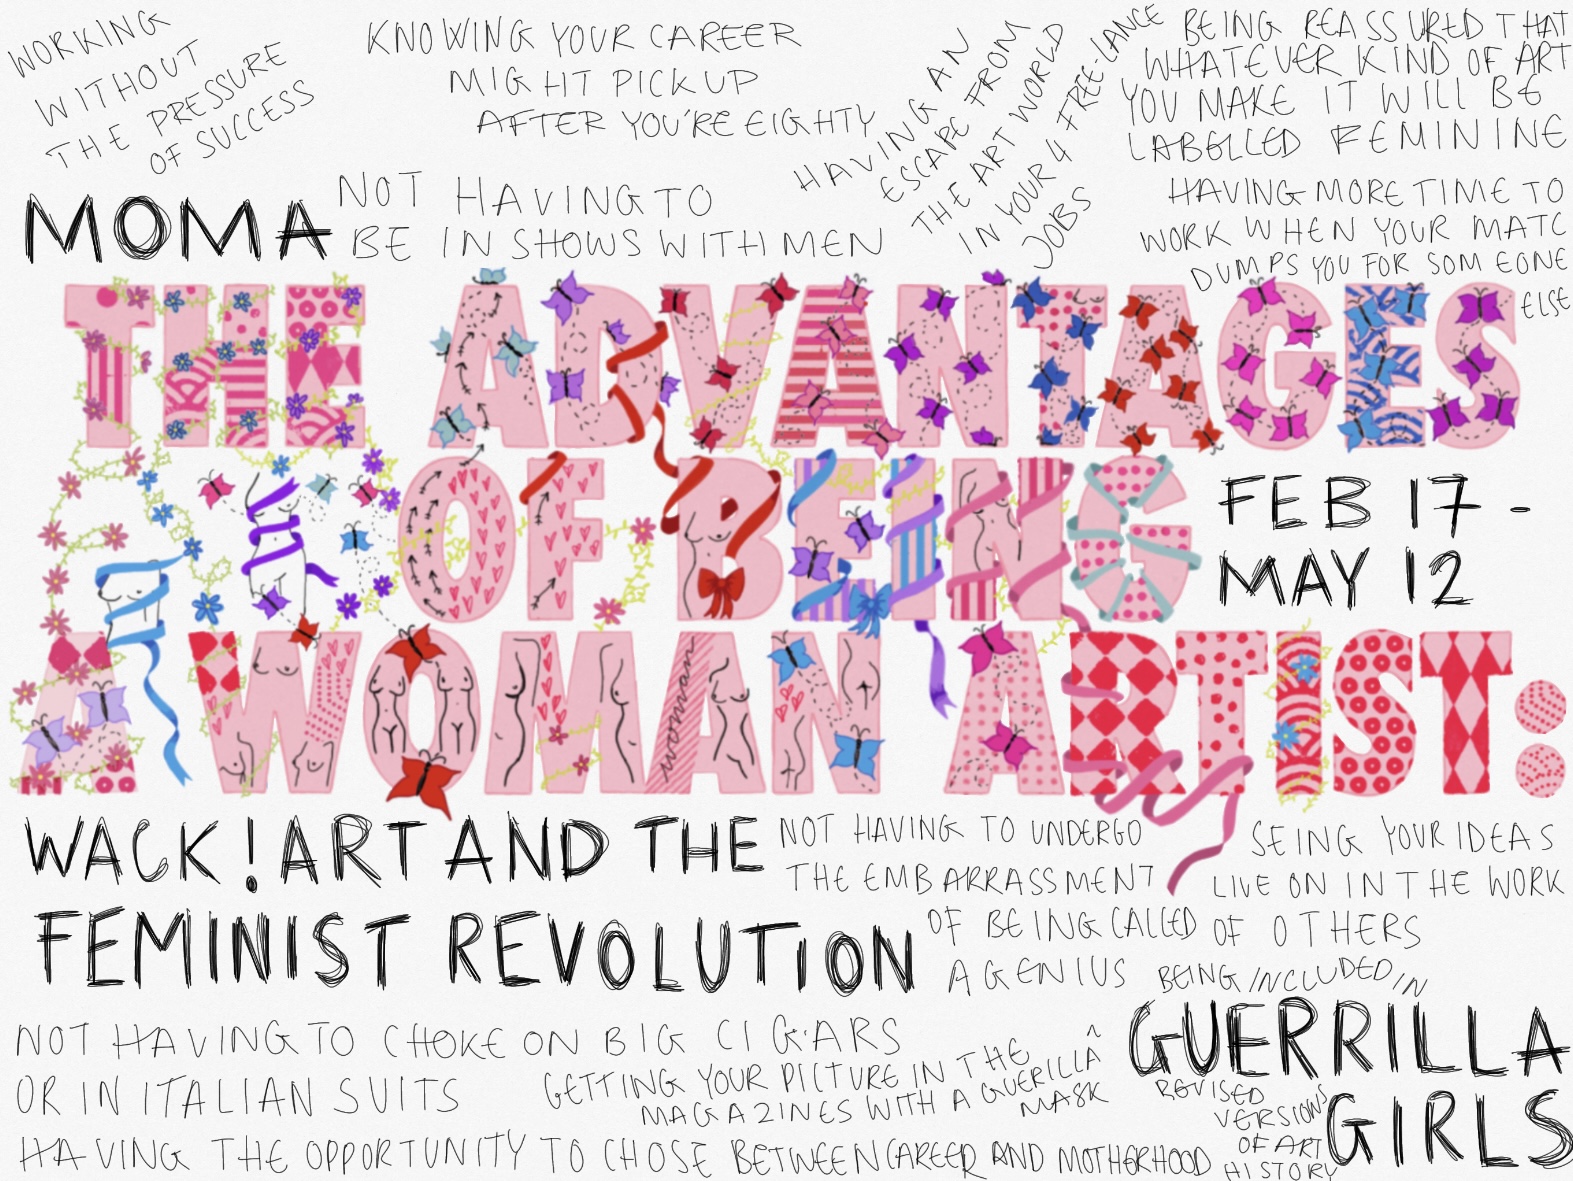 WORKING
WITHOUT
THE PRESSURE
OF SUCCESS
KNOWING YOUR CAREER
MIGHT PICK UP
AFTER YOU'RE EIGHTY
HAVING AN
ESCAPE FROM
THE ART WORLD
IN YOUR 4 FREE-LANCE
JOBS
BEING REASSURED THAT
WHATEVER KIND OF ART
YOU MAKE IT WILL BE
LABELLED FEMININE
MOMA
NOT HAVING TO
BE IN SHOWS WITH MEN
HAVING MORE TIME TO
WORK WHEN YOUR MATE
DUMPS YOU FOR SOMEONE
ELSE
THE ADVANTAGES
OF BEING
FEB 17 -
MAY 12
A WOMAN ARTIST:
woman
WACK! ART AND THE
FEMINIST REVOLUTION
NOT HAVING TO UNDERGO
THE EMBARRASSMENT
OF BEING CALLED
A GENIUS
SEING YOUR IDEAS
LIVE ON IN THE WORK
OF OTHERS
BEING INCLUDED IN
REVISED
VERSIONS
OF ART
HISTORY
GUERRILLA
GIRLS
NOT HAVING TO CHOKE ON BIG CIGARS
OR IN ITALIAN SUITS
GETTING YOUR PICTURE IN THE
MAGAZINES WITH A GUERILLA
MASK
HAVING THE OPPORTUNITY TO CHOSE BETWEEN CAREER AND MOTHERHOOD